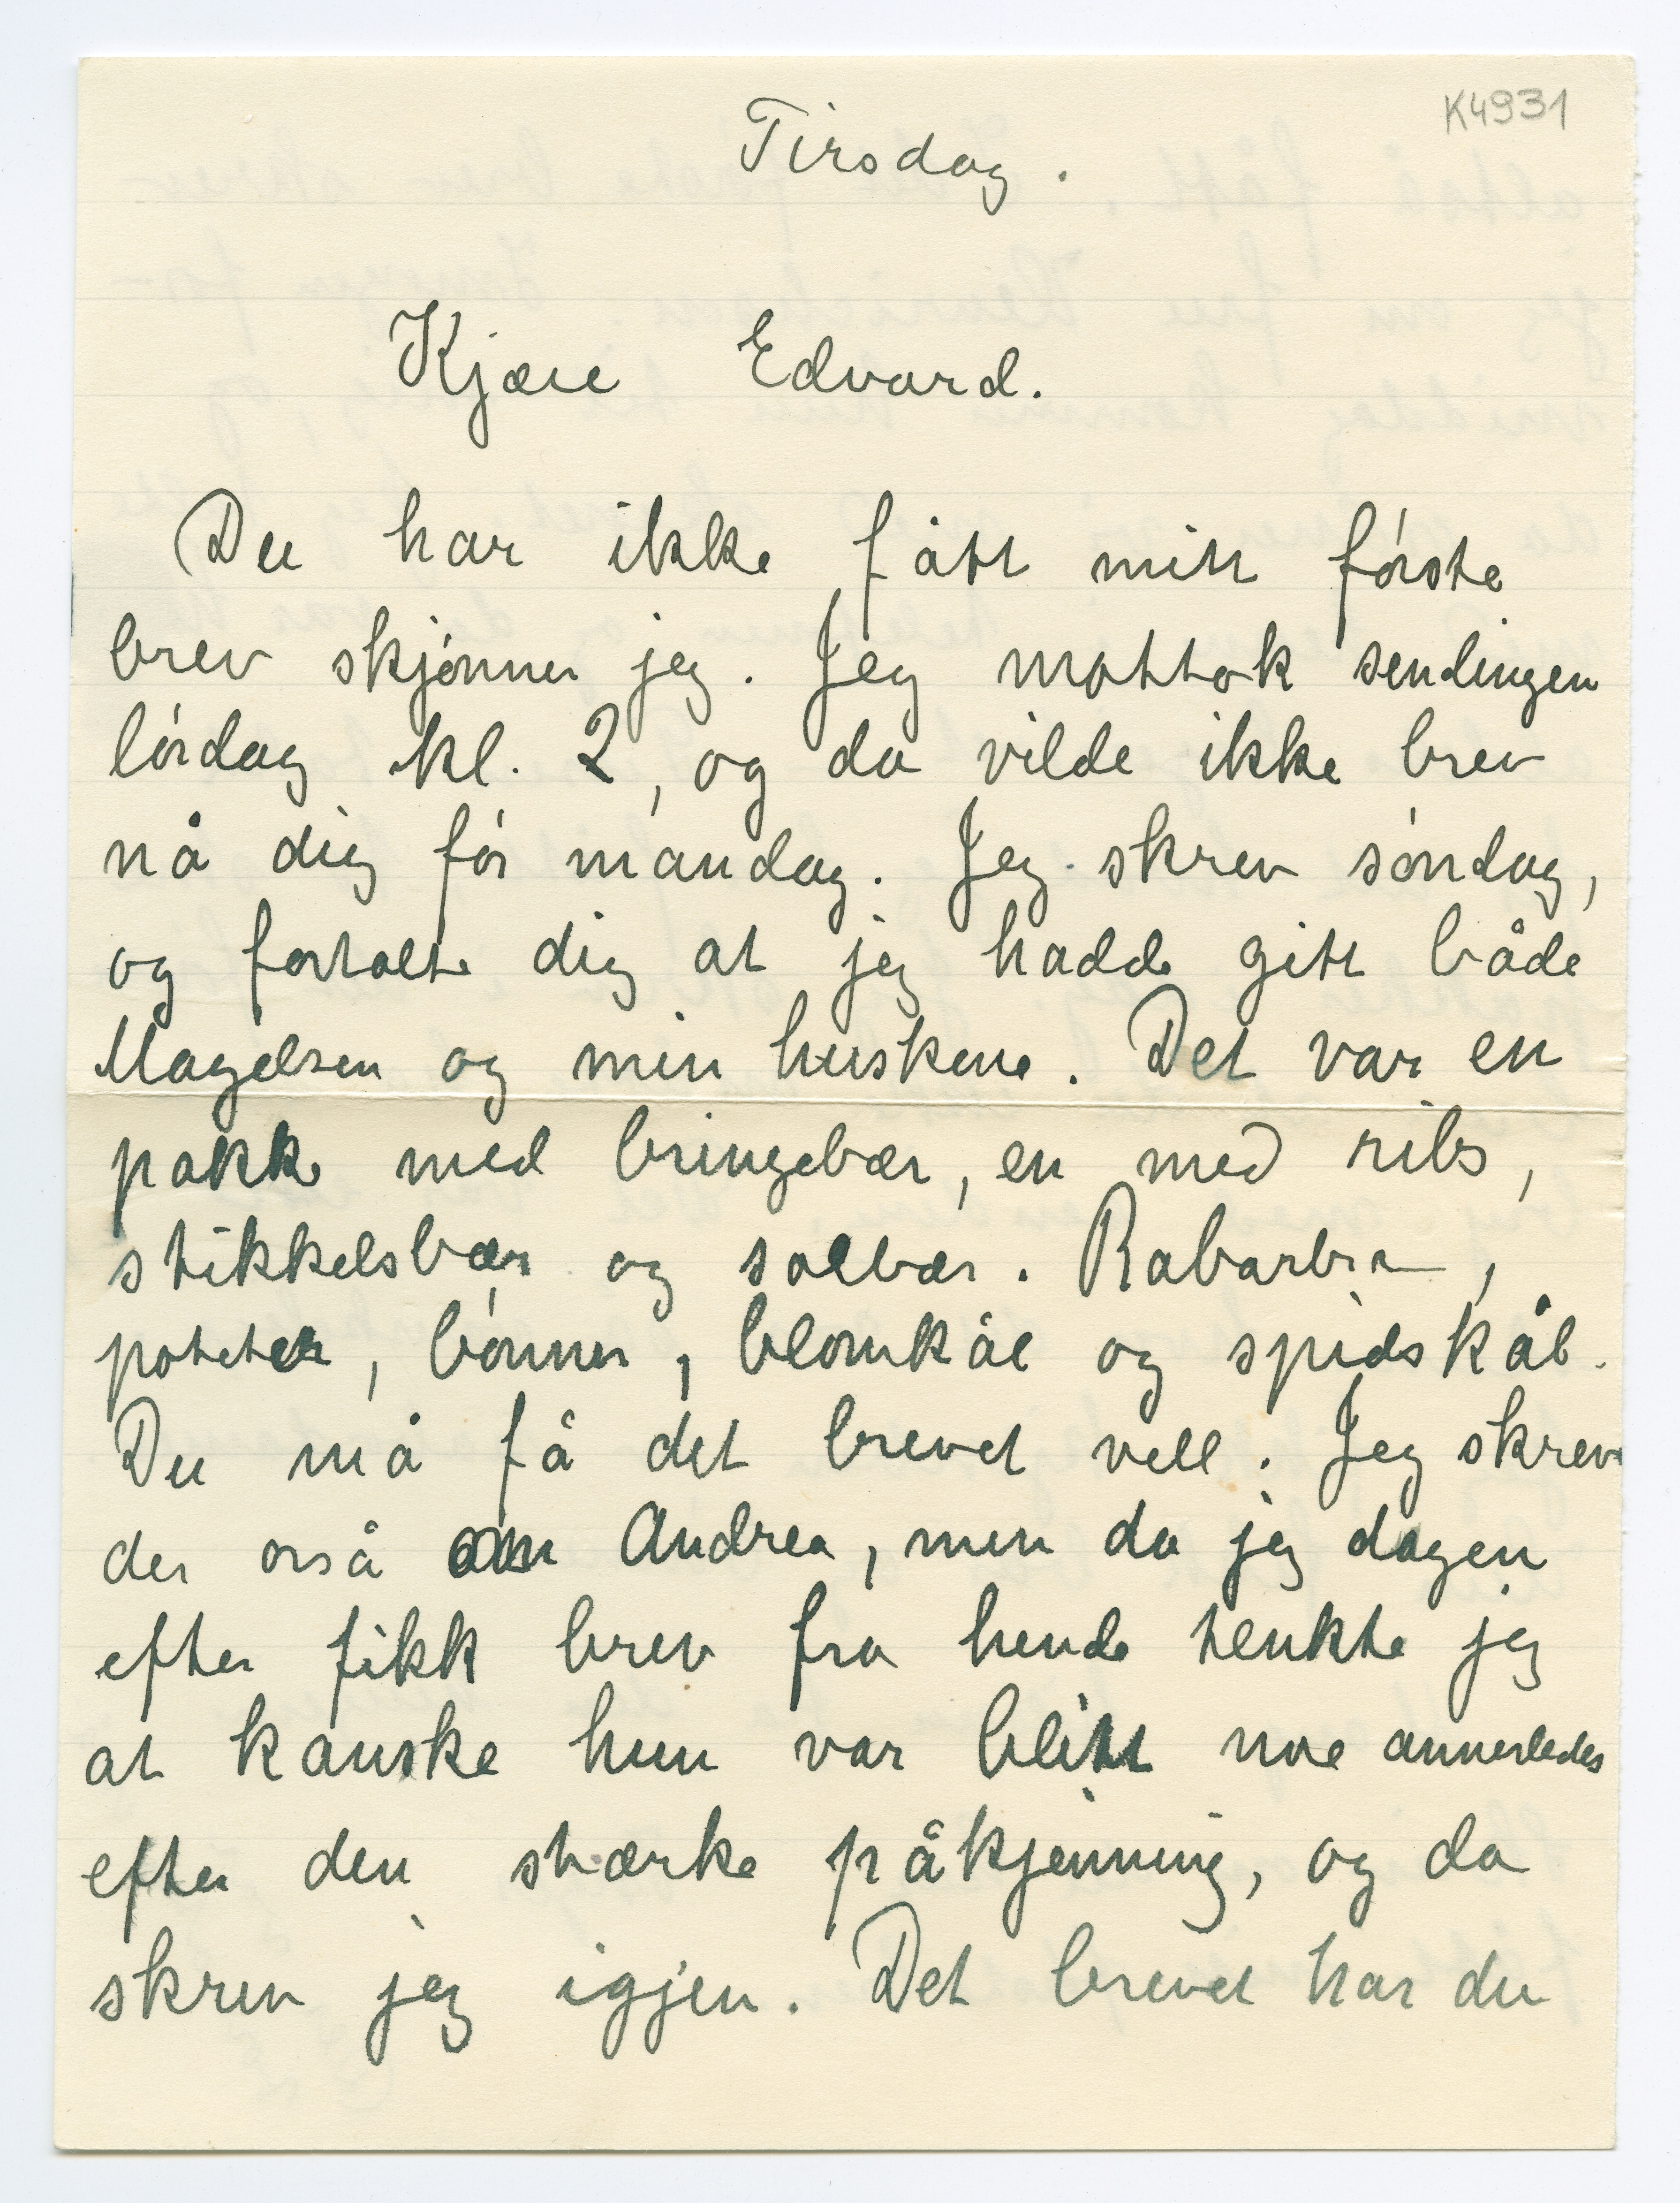 K4931
Tirsdag.
Kjære Edvard.
Du har ikke fått mitt første
brev skjønner jeg. Jeg mottok sendingen
lørdag kl. 2, og da vilde ikke brev
nå dig før mandag. Jeg skrev søndag,
og fortalte dig at jeg hadde gitt både
Magelsen og min huskone. Det var en
pakke med bringebær, en med ribs,
stikkelsbær og solbær. Rabarbra,
poteter, bønner, blomkål og spidskål.
Du må få det brevet vell. Jeg skrev
der osså om Andrea, men da jeg dagen
efter fikk brev fra hende tenkte jeg
at kanske hun var blitt noe annerledes
efter den stærke påkjenning, og da
skrev jeg igjen. Det brevet har du